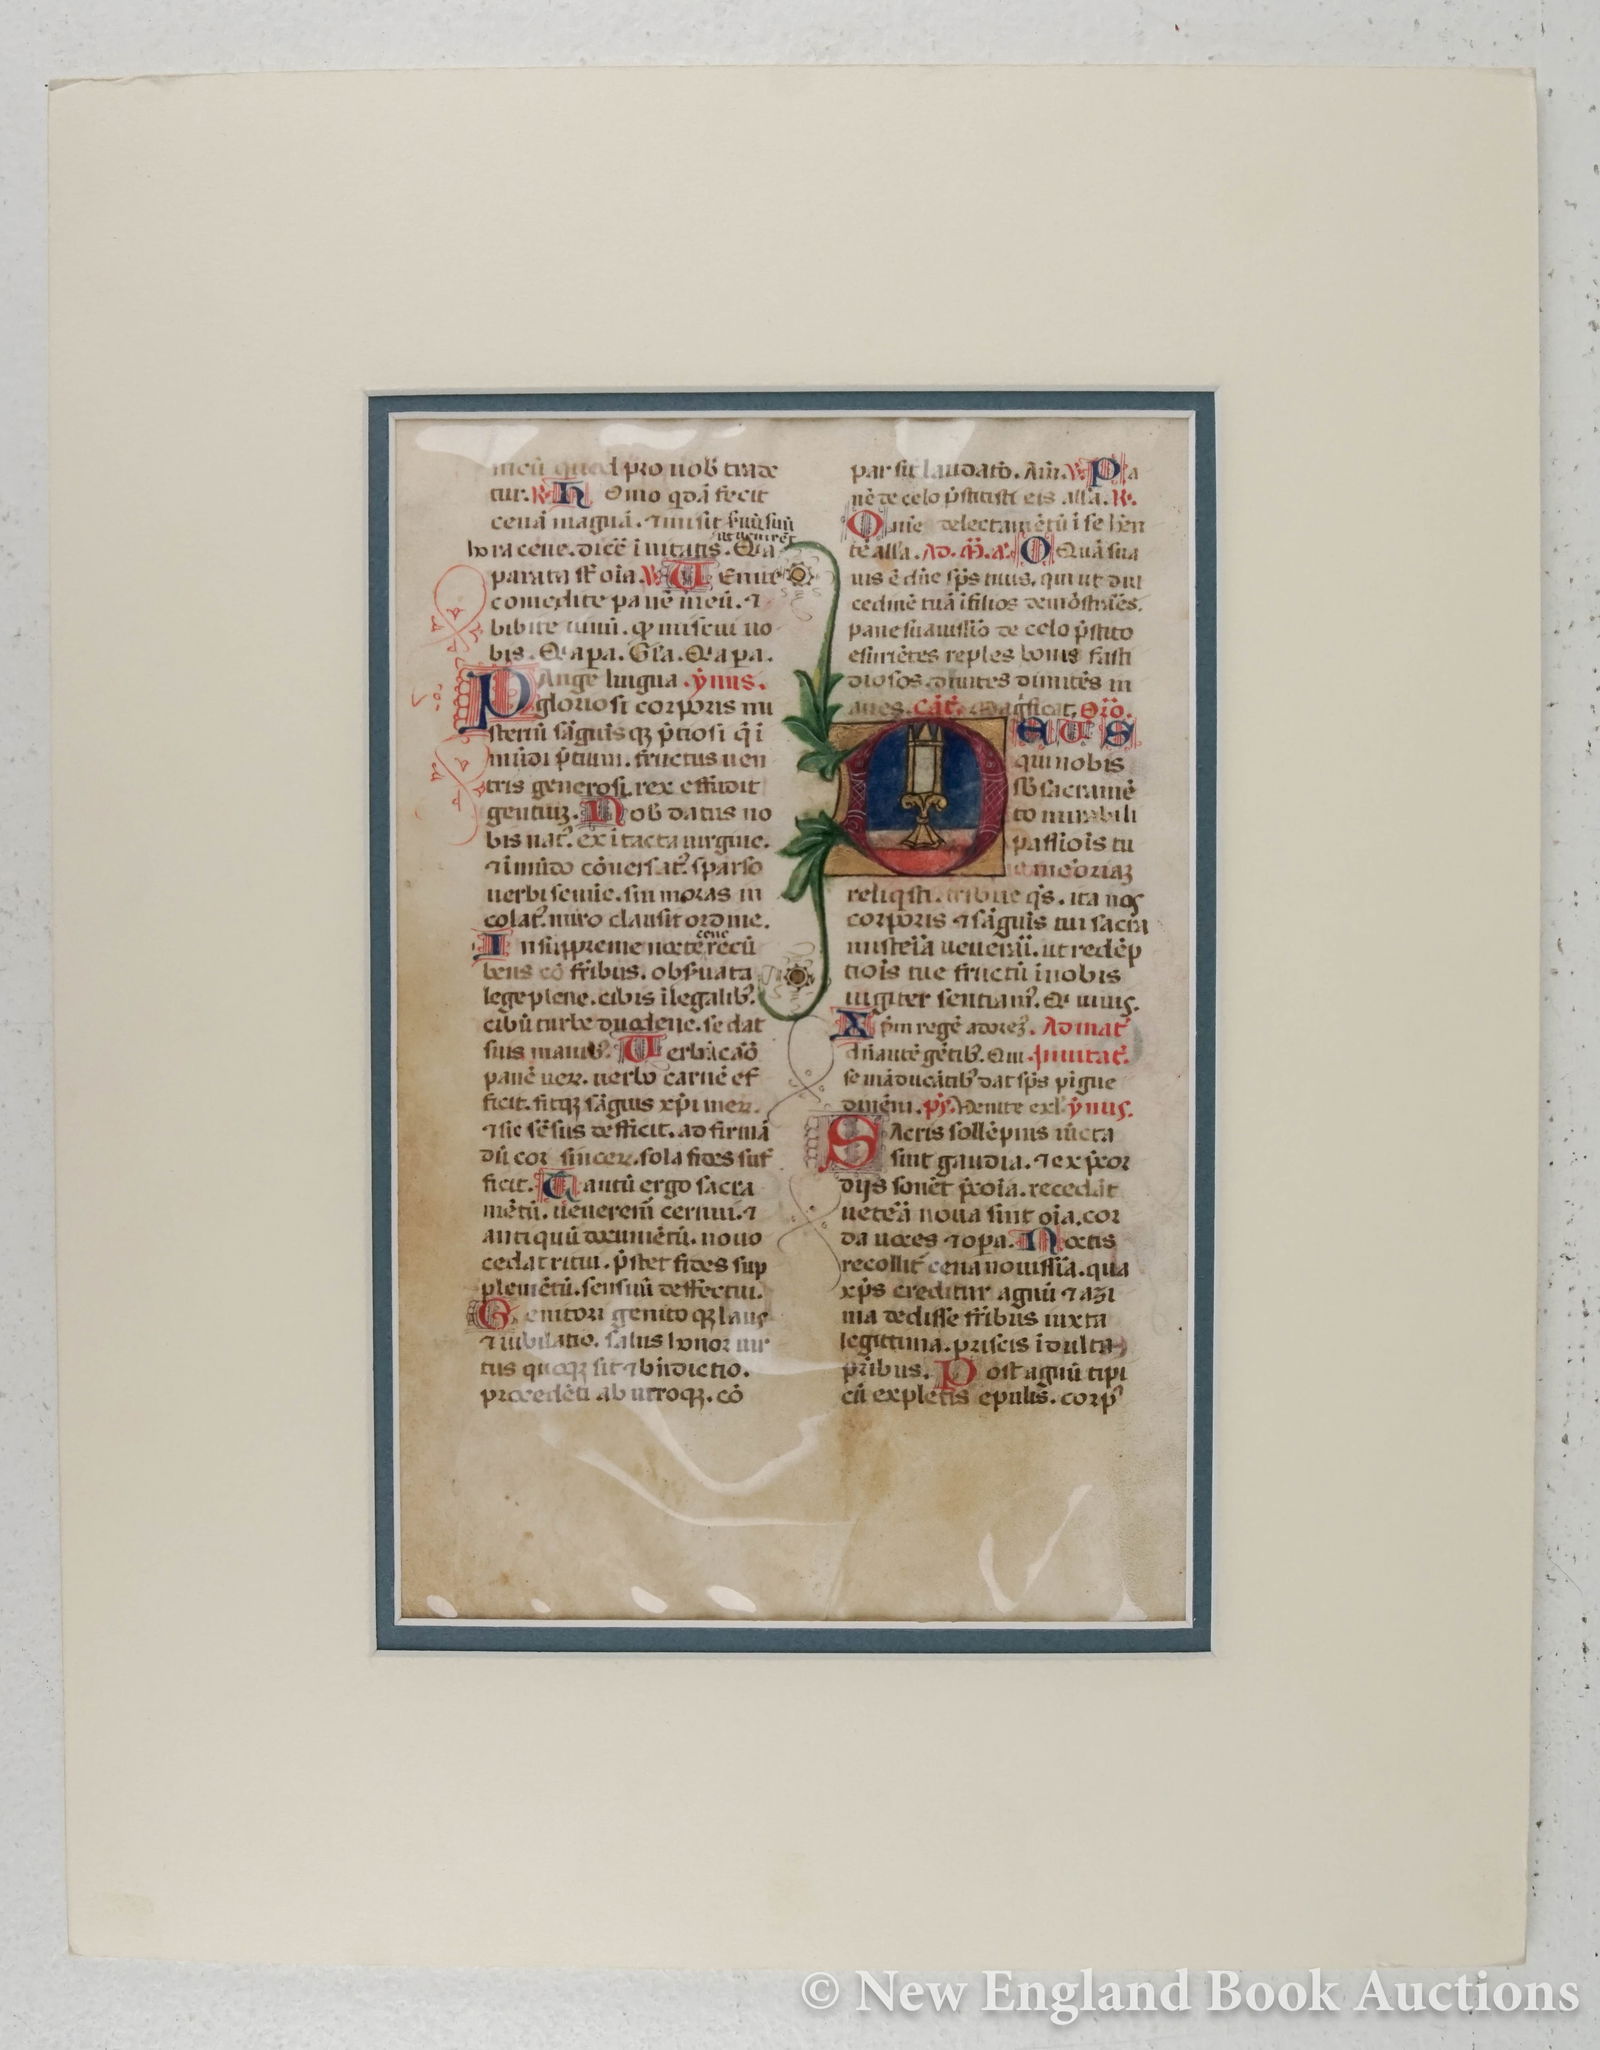 meū quod pro nob̄ trade
tur. R. Homo qdā fecit
cenā magnā. ⁊ misit ẜuū suū
hora cene. dicē īuitatis. Quia
ut venirēt
parata st̄ oīa. V. Uenite
comedite panē meū. ⁊
bibite uinū. qď miscui uo
bis. Quia pa. Gl̄a. Quia pa.
Pange lingua. ẏnus.
gloriosi corporis mi
steriū sāguisqꝫ p̄tiosi q̄ ī
mūdi p̄tium. fructus uen
tris generosi. rex effudit
gentiuꝫ. Nob̄ datus no
bis nat᷒. ex ītacta uirgine.
⁊ ī mūdo cōuersat᷒. sparso
uerbi semīe. sui moras in
colat᷒. miro clausit ordine.
In suppreme nocte cene recū
bens cō fr̄ibus. obẜuata
lege plene. cibis ī legalib᷒.
cibū turbe duodene. se dat
suis manib᷒. Uerbū caō
panē ueꝝ. uerbo carnē ef
ficit. fitqꝫ sāguis xp̄i meꝝ.
⁊ si sēsus defficit. ad firmā
dū cor sinceꝝ. sola fides suf
ficit. Tantū ergo sacra
mētū. uenerem̄ cernui. ⁊
antiquū documētū. nouo
cedat ritui. p̄stet fides sup
plemētū. sensuū deffectui.
Genitori genitoqꝫ laus
⁊ iubilatio. salus honor uir
tus quoqꝫ sit ⁊ bn̄dictio.
procedēti ab utroqꝫ. cō
par sit laudatō. Am̄. V. Pa
nē de celo p̄stitisti eis all̄a. R.
Omē delectamētū ī se hēn
tē all̄a. Ad. M̄. a᷒. O Quā sua
uis ē dn̄e sp̄s tuus. qui ut dul
cedinē tuā ī filios demōstrāēs.
pane suauissīo de celo p̄stito
esuriētes reples bonis fasti
diosos diuites dimittēs in
anes. Cāt. Magficat. Orō.
DEUS
qui nobis
sb̄ sacramē
to mirabili
passiōis tu
e meōriaꝫ
reliqsti. tribue qs̄. ita nos
corporis ⁊ sāguīs tui sacra
misteīa ueneraī. ut redēp
tiōis tue fructū ī nobis
iugiter sentiam᷒. Qui uiuis.
Xp̄m regē adoreꝫ. Ad mat᷒
dn̄antē gētib᷒. Qui Inuitat᷒.
se māducātib᷒ dat sp̄s pīgue
dinēm. ps̄. Uenite exl. ẏnus.
Sacris sollēpnis iūcta
sint gaudia. ⁊ ex p̄cor
dijs sonēt p̄coīa. recedāt
ueteā noua sint oīa. cor
da uoces ⁊ opa. Noctis
recolit᷒ cena nouissīa. qua
xp̄s creditur agnū ⁊ azi
ma dedisse fr̄ibus iuxta
legittima. priscis īdulta
pr̄ibus. Post agnū tipi
cū expletis epulis. corp᷒
© New England Book Auctions